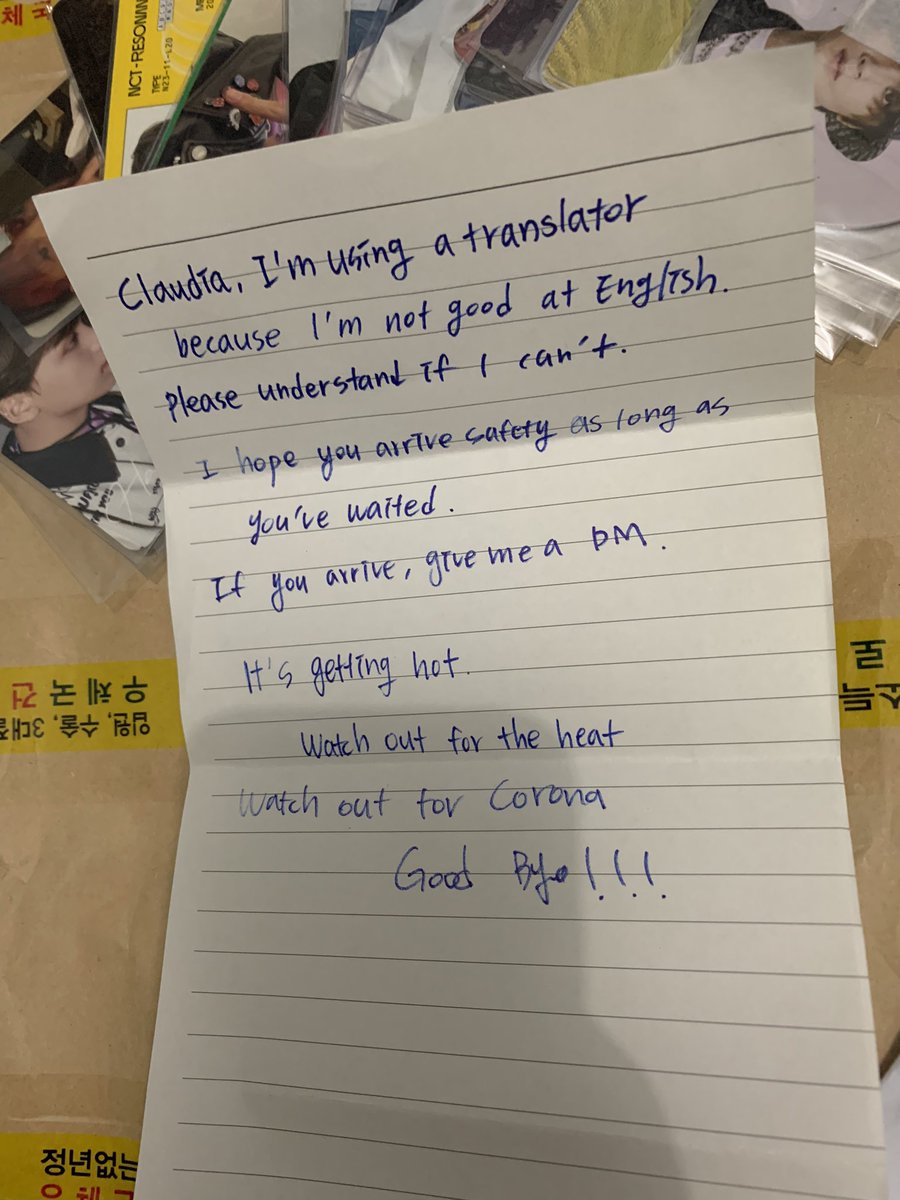 체
NCT-RESONAN
TYPE
N23-11-L20
Claudia, I'm using a translator
because I'm not good at English.
please understand if I can't.
I hope you arrive safety as long as
you've waited.
If you arrive, give me a DM.
It's getting hot.
Watch out for the heat
Watch out for Corona
Good Bye!!!
우체국건
입원, 수술, 3대질
로
소득
정년없는
우체국